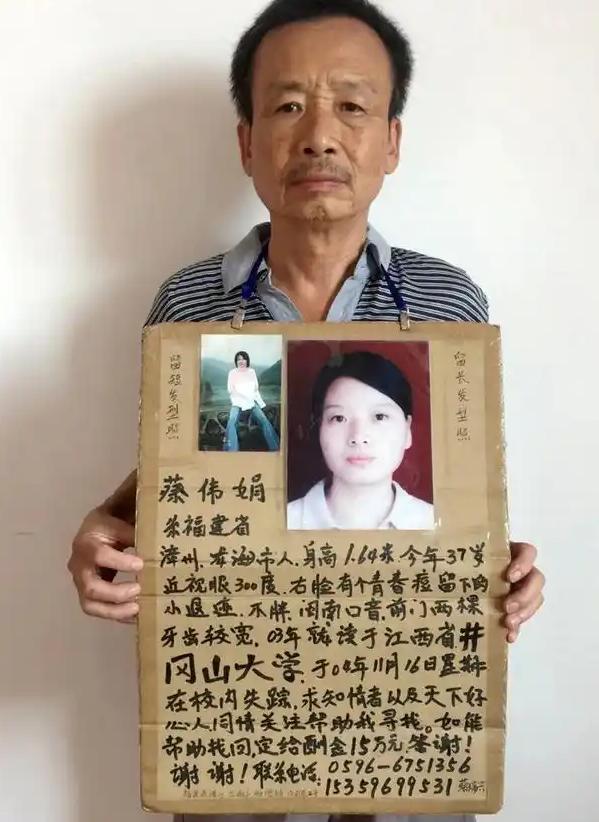 留短发型照
留长发型照
蔡伟娟
系福建省
漳州.龙海市人.身高1.64米.今年37岁
近视眼300度.右脸有个青春痘留下的
小退迹.不胖.闽南口音.前门两棵
牙齿较宽.03年就读于江西省井
冈山大学.于04年11月16日
在校内失踪.求知情者以及天下好
心人同情关注帮助我寻找。如能
帮助找回定给酬金15万元答谢!
谢谢!联系电话:0596-6751356
15359699531